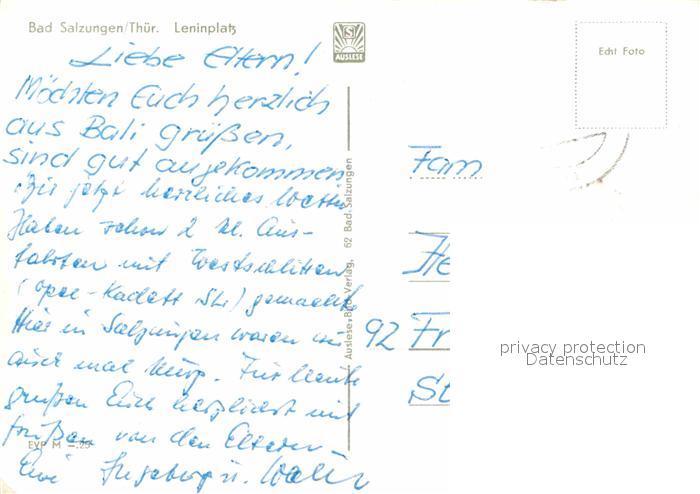 Bad Salzungen/Thür. Leninplatz
AUSLESE
Echt Foto
Liebe Eltern!
Möchten Euch herzlich
aus Bali grüßen,
sind gut angekommen
Bis jetzt herrliches Wetter
Haben schon 2 kl. Aus-
fahrten mit Westschlitten
(Opel-Kadett) gemacht
Hier in Salzungen waren wir
auch mal kurz. Für heute
grüßen Euch herzlichst mit
Grüßen von den Eltern
Eure Ingeborg u. Walter
EVP M -.25
Auslese-Bild-Verlag, 62 Bad Salzungen
Fam
He
92 Fr
St
privacy protection
Datenschutz